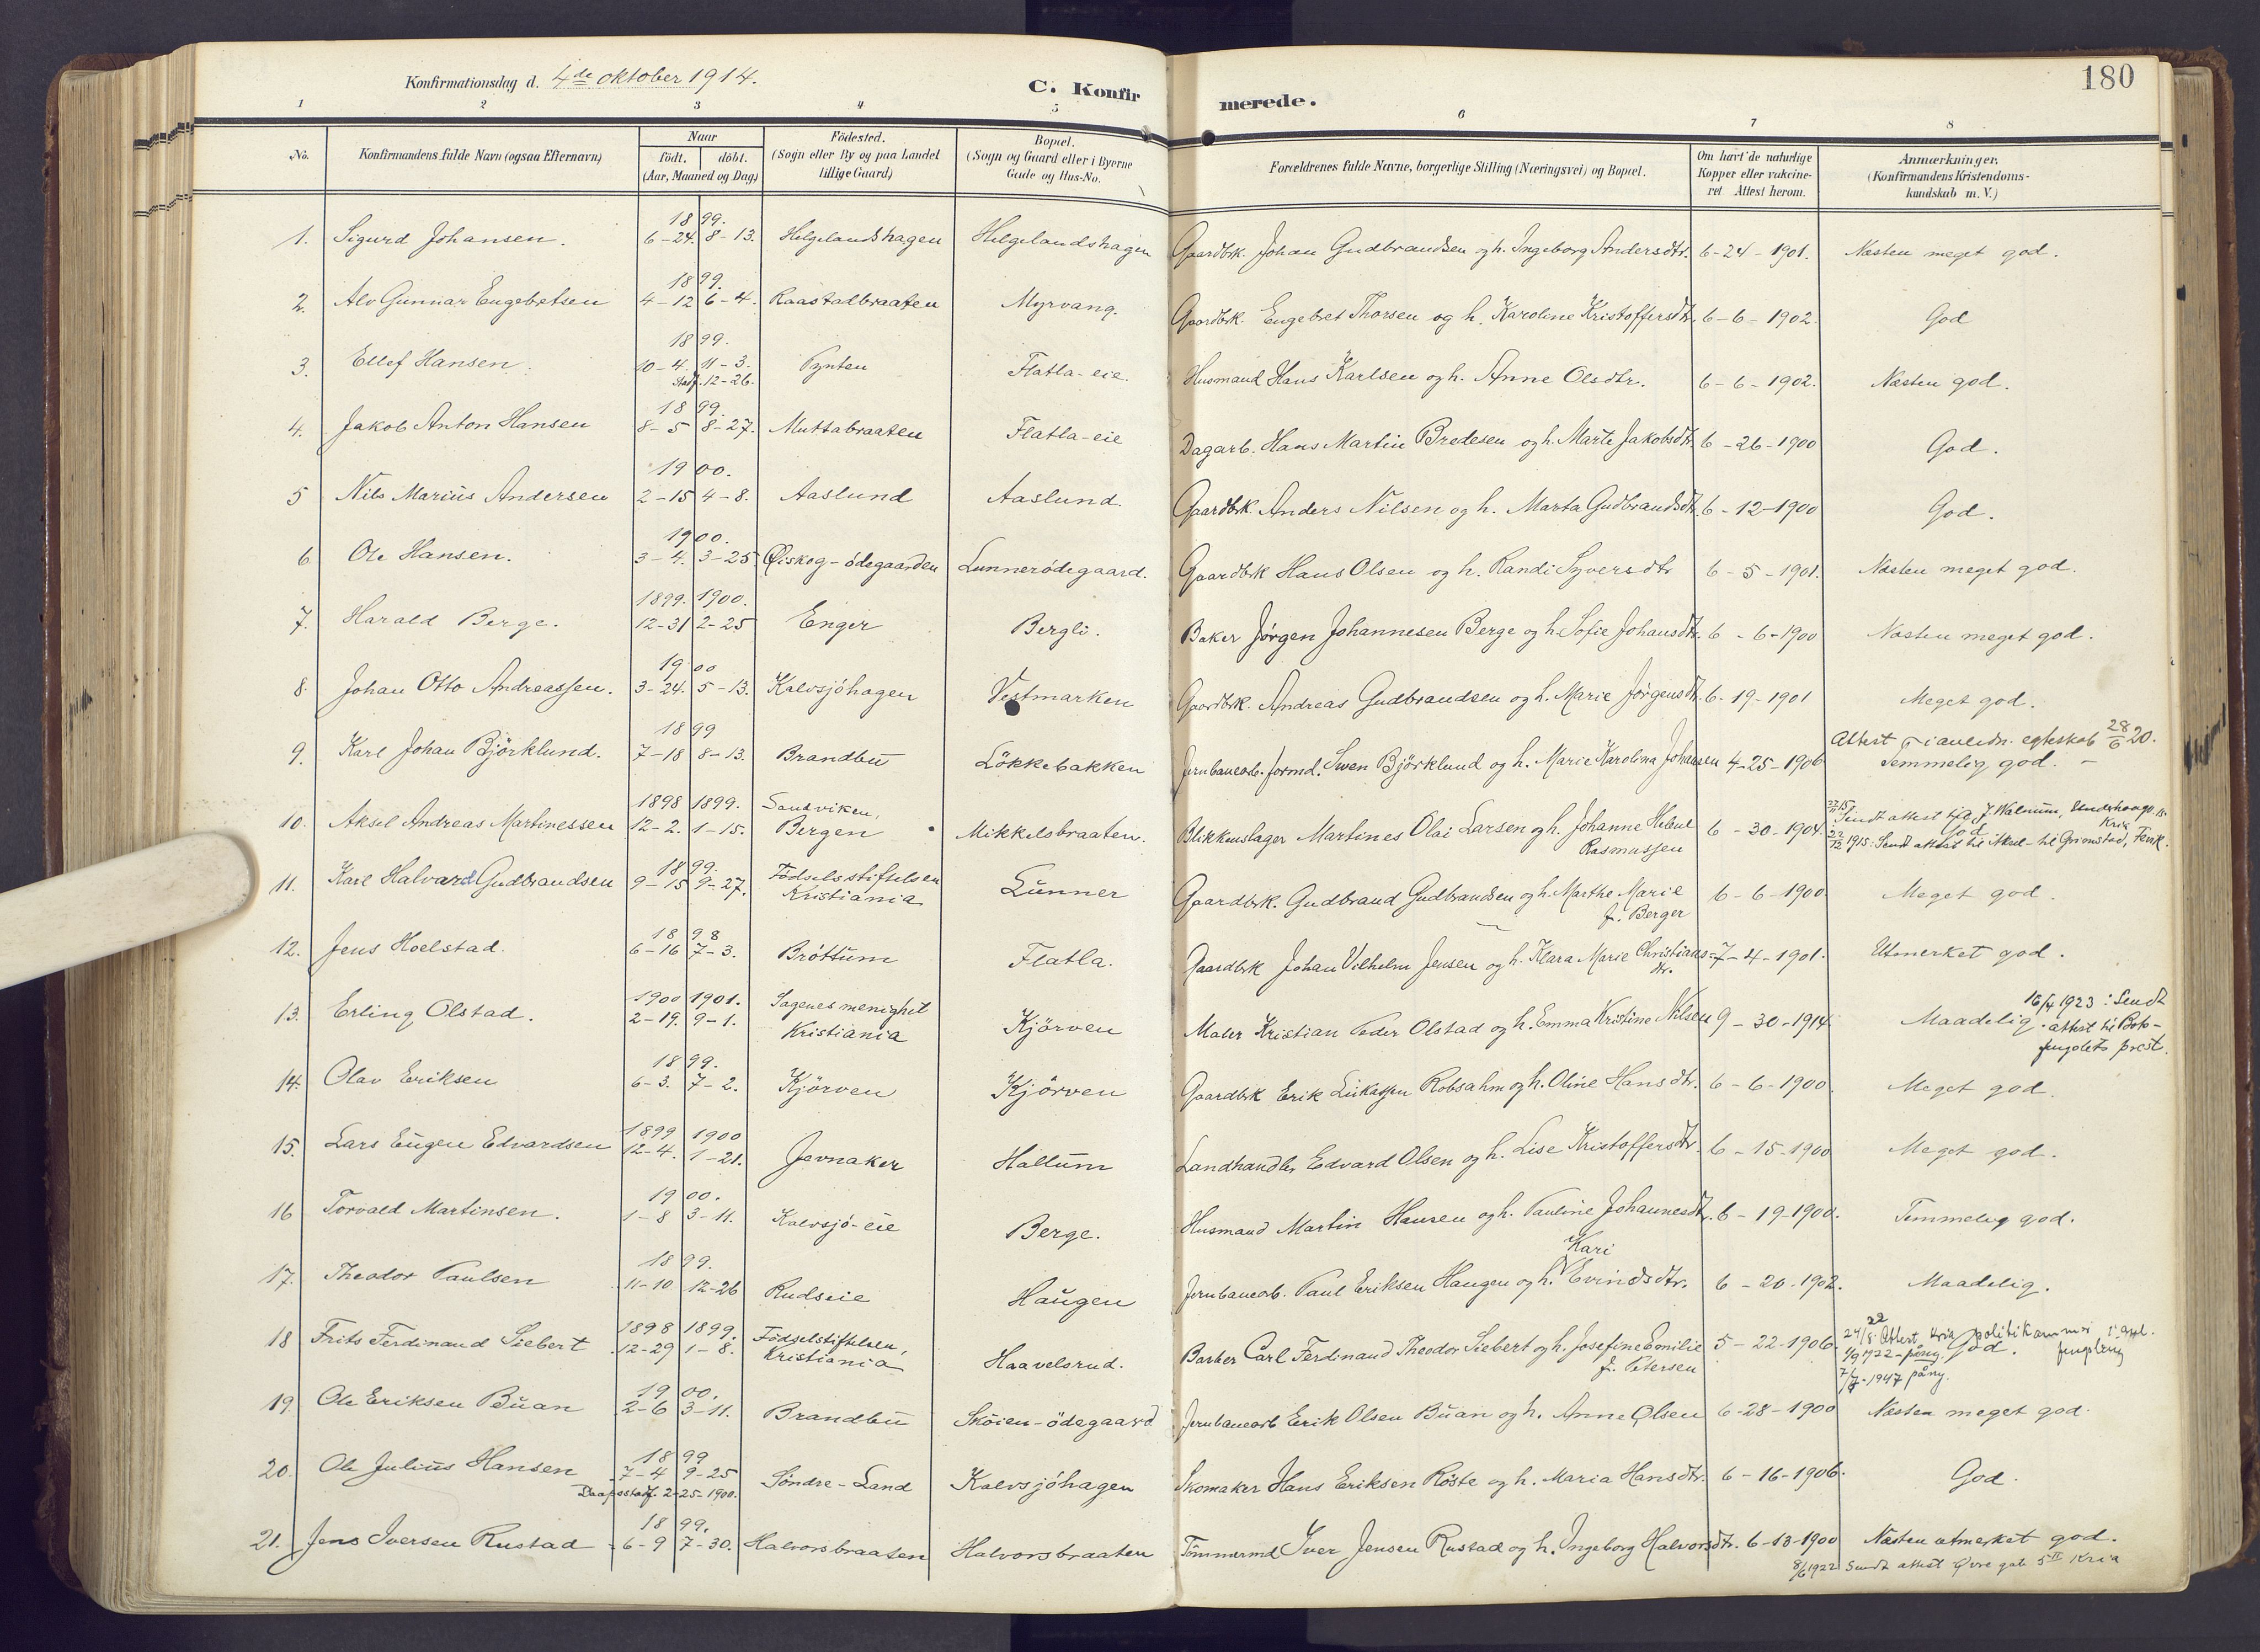 180
Konfirmationsdag d. 4de oktober 1914.
C. Konfirmerede.
1 2 3 4 5 6 7 8
No. Konfirmandens fulde Navn (ogsaa Efternavn) Naar födt. döbt. (Aar, Maaned og Dag) Födested. (Sogn eller By og paa Landet tillige Gaard) Bopæl. (Sogn og Gaard eller i Byerne Gade og Hus-No. Forældrenes fulde Navne, borgerlige Stilling (Næringsvei) og Bopæl. Om havt de naturlige Kopper eller vakcineret Attest herom. Anmærkninger. (Konfirmandens Kristendomskundskab m. V.)
1. Sigurd Johansen. 1899. 6-24. 8-13. Helgelandshagen Helgelandshagen Gaardbrk. Johan Gudbrandsen og h. Ingeborg Andersdtr. 6-24-1901. Næsten meget god.
2. Alv Gunnar Engebretsen 1899. 4-12 6-4. Raastadbraaten Myrvang. Gaardbrk. Engebret Thorsen og h. Karoline Kristoffersdtr. 6-6-1902. God
3. Ellef Hansen. 1899. 10-4. 11-3. Stadf. 12-26. Pynten Flatla-eie. Husmand Hans Karlsen og h. Anne Olsdtr. 6-6-1902. Næsten god.
4. Jakob Anton Hansen 1899. 8-5 8-27. Muttabraaten Flatla-eie Dagarb. Hans Martin Bredesen og h. Marte Jakobsdtr. 6-26-1900 God.
5 Nils Marius Andersen 1900. 2-15 4-8. Aaslund Aaslund. Gaardbrk. Anders Nilsen og h. Marta Gudbrandsdtr. 6-12-1900 God.
6 Ole Hansen. 1900. 3-4. 3-25 Øiskog-ödegaarden Lunnerödegaard. Gaardbrk Hans Olsen og h. Randi Syversdtr 6-5-1901. Næsten meget god.
7. Harald Berge. 1899. 1900. 12-31 2-25 Enger Bergli. Baker Jørgen Johannesen Berge og h. Sofie Johansdtr. 6-6-1900 Næsten meget god.
8. Johan Otto Andreassen. 1900 3-24. 5-13. Kalvsjöhagen Vestmarken Gaardbrk. Andreas Gudbrandsen og h. Marie Jörgensdtr. 6-19-1901 Meget god.
9. Karl Johan Björklund. 1899 7-18 8-13. Brandbu Lökkebakken Jernbanearb. formd. Swen Björklund og h. Marie Karolina Johansen 4-25-1906 Attest i anledn. egteskab 28/6 20. Temmelig god.
10. Aksel Andreas Martinessen 1898 1899. 12-2. 1-15. Sandviken, Bergen Mikkelsbraaten. Blikkenslager Martines Olai Larsen og h. Johanne Helene Rasmussen 6-30-1904. Sendt attest God 22/12 1915: Sendt attest til Aksel - til Grimstad,
11. Karl Halvard Gudbrandsen 1899. 9-15 9-27. Födselsstiftelsen Kristiania Lunner Gaardbrk. Gudbrand Gudbrandsen og h. Marthe Marie f. Berger 6-6-1900. Meget god.
12. Jens Hoelstad. 1898 6-16 7-3. Bröttum Flatla. Gaardbrk Johan Vilhelm Jensen og h. Klara Marie Christiansdtr. 7-4-1901. Utmerket god.
13. Erling Olstad. 1900 1901. 2-19. 9-1. Sagenes menighet Kristiania Kjörven Maler Kristian Peder Olstad og h. Emma Kristine Nilsen 9-30-1914. Maadelig. 16/4 1923: Sendt attest til Botsfengslets prest.
14. Olav Eriksen 1899. 6-3. 7-2. Kjörven Kjörven Gaardbrk Erik Lukassen Robsahm og h. Oline Hansdtr. 6-6-1900. Meget god.
15. Lars Eugen Edvardsen 1899 1900 12-4. 1-21. Jevnaker Hallum Landhandler Edvard Olsen og h. Lise Kristoffersdtr. 6-15-1900 Meget god.
16 Torvald Martinsen. 1900. 1-8 3-11. Kalvsjö-eie Berge. Husmand Martin Hansen og h. Pauline Johannesdtr. 6-19-1900. Temmelig god.
17. Theodor Paulsen 1899. 11-10 12-26 Rudseie Haugen Jernbanearb. Paul Eriksen Haugen og h. Kari Evindsdtr. 6-20-1902. Maadelig.
18 Frits Ferdinand Siebert 1898 1899. 12-29 1-8. Födselstiftelsen, Kristiania Haavelsrud. Barber Carl Ferdinand Theodor Siebert og h. Josefine Emilie f. Petersen 5-22-1906. 24/8 22 Attest Kria politikammer God. 1/9 1922 - påny. 7/7-1947 påny.
19. Ole Eriksen Buan 1900. 2-6 3-11. Brandbu Sköien-ödegaard Jernbanearb Erik Olsen Buan og h. Anne Olsen 6-28-1900 Næsten meget god.
20. Ole Julius Hansen 1899 7-4 9-25 Daapsstadf. 2-25-1900. Söndre-Land Kalvsjöhagen Skomaker Hans Eriksen Röste og h. Maria Hansdtr. 6-16-1906. God.
21. Jens Iversen Rustad 1899. 6-9 7-30. Halvorsbraaten Halvorsbraaten Tömmermd Iver Jensen Rustad og h. Ingeborg Halvorsdtr. 6-13-1900 Næsten utmerket god.
8/6 1922 Sendt attest Øvre gate 5 II Kria